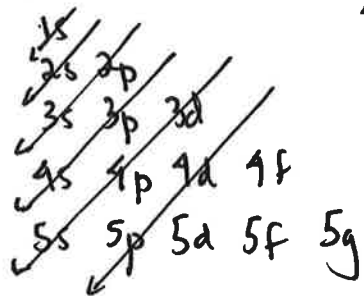 1s
2s 2p
3s 3p 3d
4s 4p 4d 4f
5s 5p 5d 5f 5g